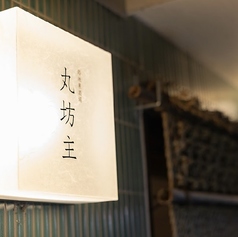 丸坊主